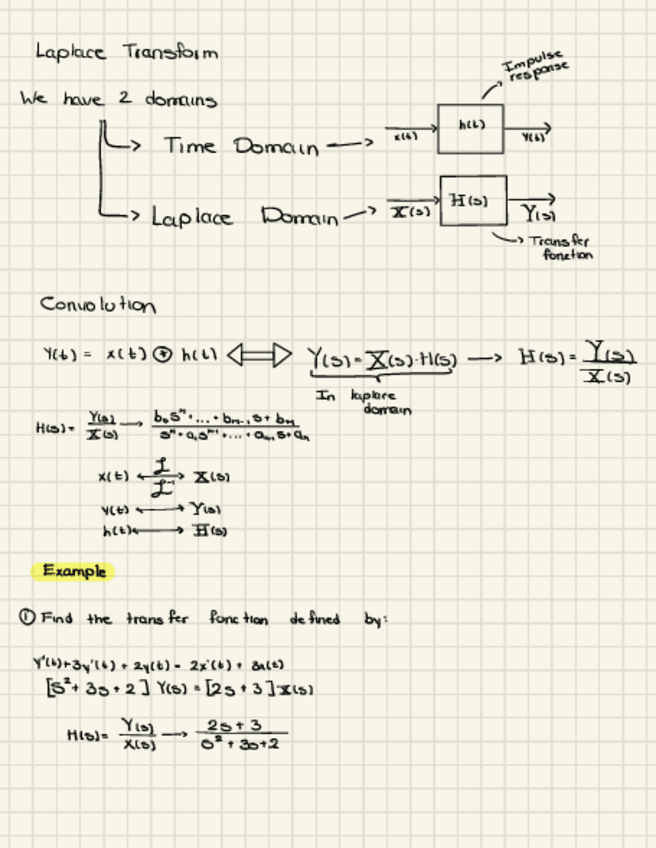 Laplace Transform
Impulse
response
We have 2 domains
Time Domain → x(t) h(t) y(t)
Laplace Domain → X(s) H(s) Y(s)
Transfer
fonction
Convolution
Y(t) = x(t) ⊛ h(t) ⟺ Y(s) = X(s)·H(s) → H(s) = Y(s)/X(s)
In laplace
domain
H(s) = Y(s)/X(s) → (b₀s^m + ... + b_{m-1}s + b_m)/(s^n + a₁s^{n-1} + ... + a_{n-1}s + a_n)
x(t) ⟷ X(s) ℒ ℒ⁻¹
y(t) ⟷ Y(s)
h(t) ⟷ H(s)
Example
① Find the transfer fonction defined by:
y''(t) + 3y'(t) + 2y(t) = 2x'(t) + 3x(t)
[s² + 3s + 2] Y(s) = [2s + 3] X(s)
H(s) = Y(s)/X(s) → (2s + 3)/(s² + 3s + 2)